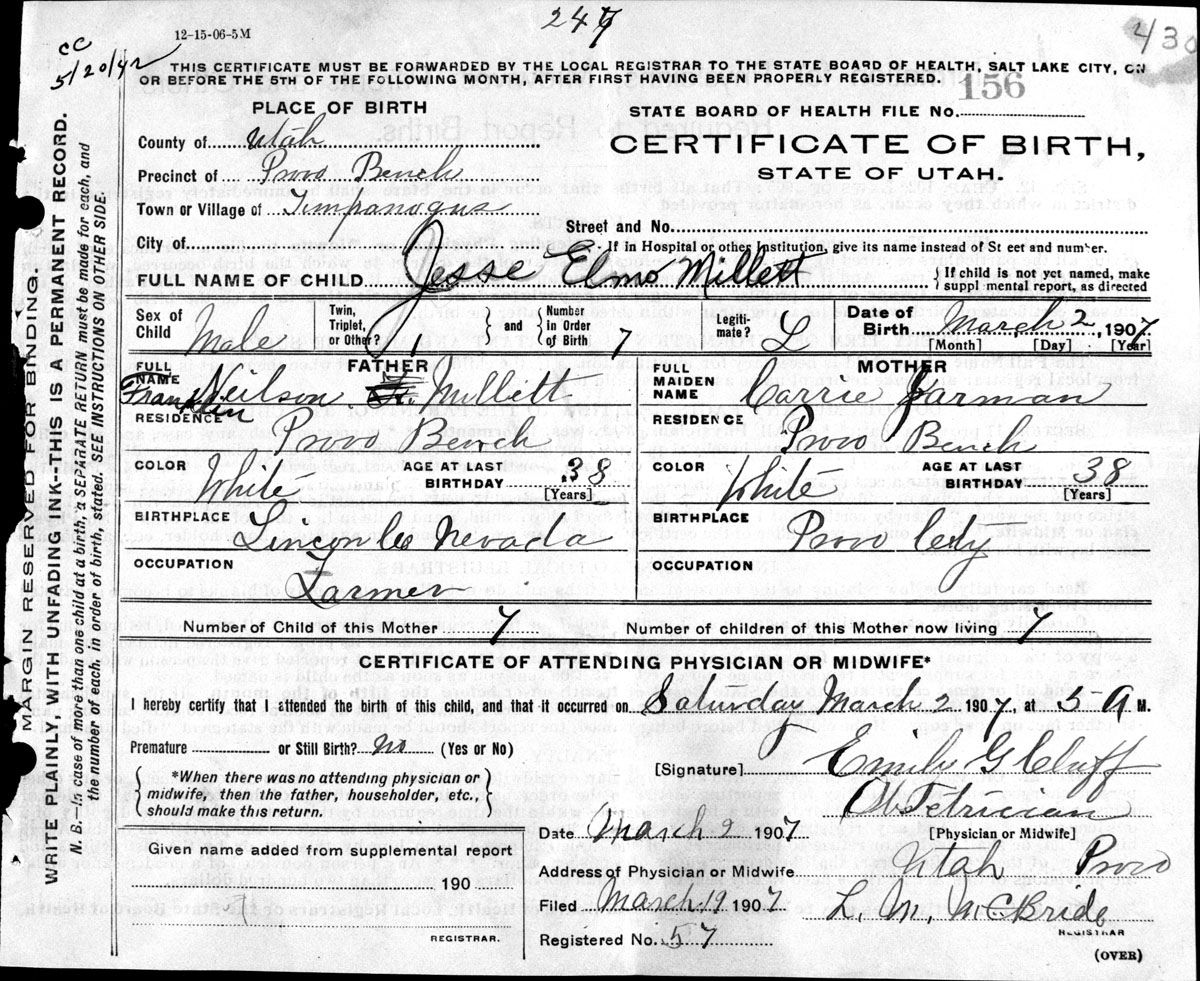 247
430
cc
5/20/42
12-15-06-5M
THIS CERTIFICATE MUST BE FORWARDED BY THE LOCAL REGISTRAR TO THE STATE BOARD OF HEALTH, SALT LAKE CITY, ON
OR BEFORE THE 5TH OF THE FOLLOWING MONTH, AFTER FIRST HAVING BEEN PROPERLY REGISTERED.
MARGIN RESERVED FOR BINDING.
WRITE PLAINLY, WITH UNFADING INK-THIS IS A PERMANENT RECORD.
N. B.-In case of more than one child at a birth, a SEPARATE RETURN must be made for each, and
the number of each, in order of birth, stated. SEE INSTRUCTIONS ON OTHER SIDE.
PLACE OF BIRTH
STATE BOARD OF HEALTH FILE No. 156
County of Utah
CERTIFICATE OF BIRTH,
Precinct of Provo Bench
STATE OF UTAH.
Town or Village of Timpanogus
Street and No.
City of
If in Hospital or other Institution, give its name instead of St eet and number.
FULL NAME OF CHILD Jesse Elmo Millett
If child is not yet named, make
suppl mental report, as directed
Sex of Child Male
Twin, Triplet, or Other?
and Number in Order of Birth 7
Legiti-mate? L
Date of Birth March 2, 1907
[Month] [Day] [Year]
FATHER
FULL NAME Franklin Neilson Millett
RESIDENCE Provo Bench
COLOR White AGE AT LAST BIRTHDAY 38 [Years]
BIRTHPLACE Linconles Nevada
OCCUPATION Farmer
MOTHER
FULL MAIDEN NAME Carrie Jarman
RESIDENCE Provo Bench
COLOR White AGE AT LAST BIRTHDAY 38 [Years]
BIRTHPLACE Provo City
OCCUPATION
Number of Child of this Mother 7 Number of children of this Mother now living 7
CERTIFICATE OF ATTENDING PHYSICIAN OR MIDWIFE*
I hereby certify that I attended the birth of this child, and that it occurred on Saturday March 2 1907, at 5 A M.
Premature or Still Birth? No (Yes or No)
*When there was no attending physician or
midwife, then the father, householder, etc.,
should make this return.
Given name added from a supplemental report
190
REGISTRAR.
[Signature] Emily G Cluff
Obstetrician
Date March 2 1907 [Physician or Midwife]
Address of Physician or Midwife Utah Provo
Filed March 19 1907 L. M. McBride
REGISTRAR
Registered No. 57
(OVER)